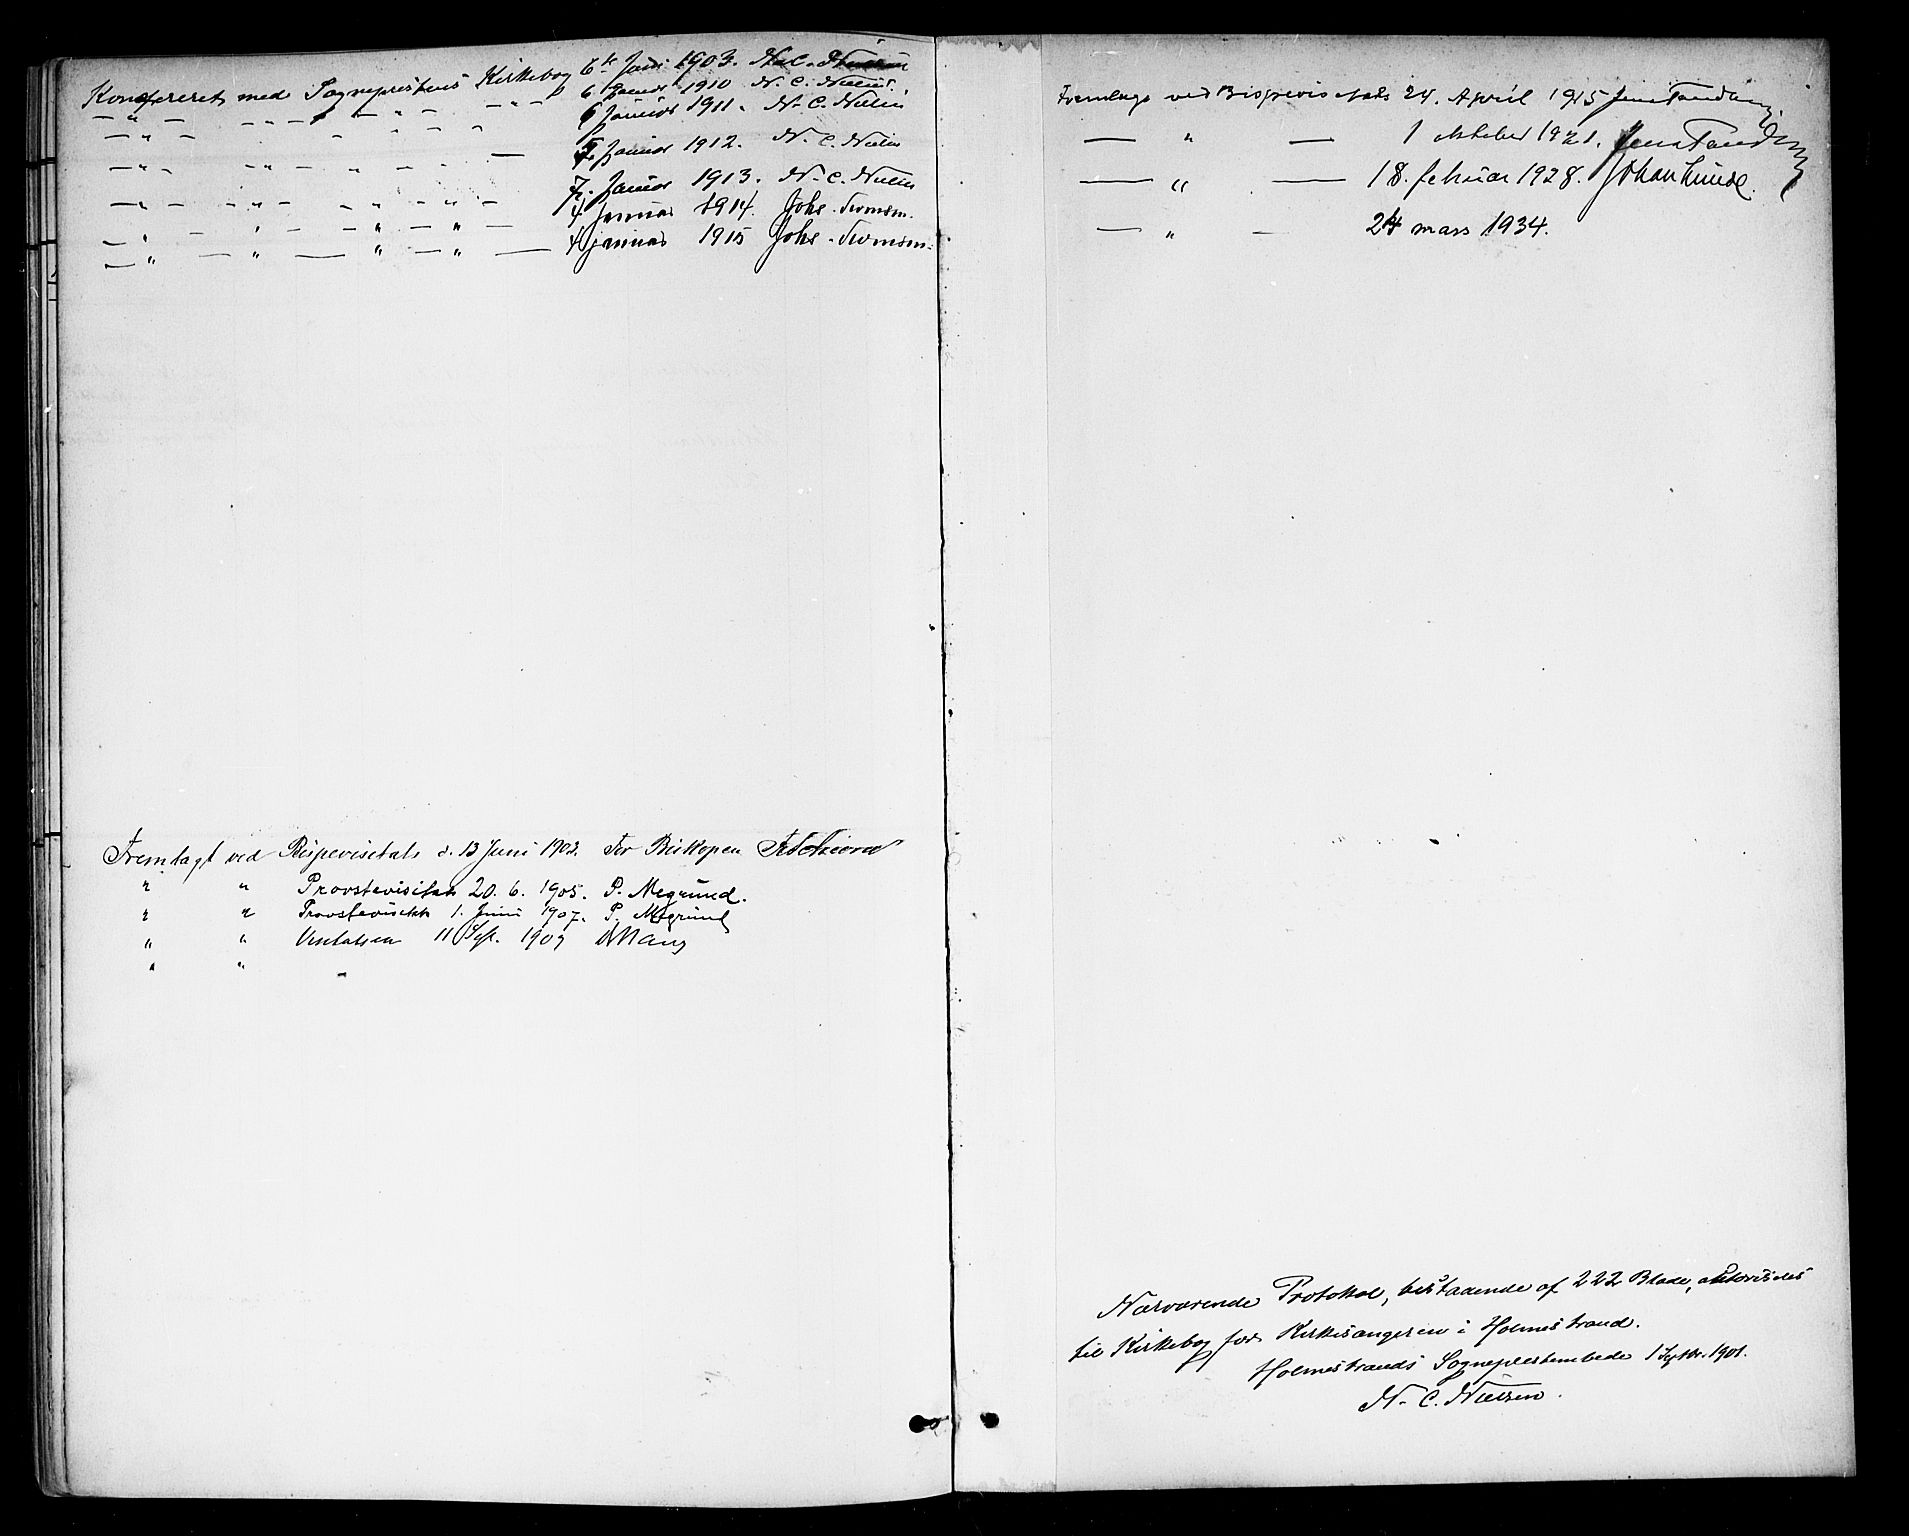 Konfereret med Sogneprestens Kirkebog 6te Jani 1903. N. C. Nielsen
— " — — " — — " — — " — 6 Januar 1910 N. C. Nielsen
— " — — " — " " " 6 Januar 1911. N. C. Nielsen
— " — — " — — " — " — Januar 1912. N. C. Nielsen
— " — — " — — " — " — 7. Januar 1913. N. C. Nielsen
— " — " — " — " — 4 januar 1914. Johs.
— " — " — " — " — 4 januar 1915 Johs.
Fremlagt ved Bispevisitats d. 13 Juni 1902. For Biskopen
" " Provstevisitats 20. 6. 1905. P. Megrund.
" " Provstevisitats 1. Juni 1907. P. Megrund
" " Visitatsen 11 Sept. 1909
" " "
Fremlagt ved Bispevisitats 24. April 1915 Jens Tandberg
— " — 1 oktober 1921. Jens Tandberg
— " — 18. februar 1928. Johan Lunde.
— " — 24 mars 1934.
Nærværende Protokol, bestaaende af 222 Blade, autoriseres
til Kirkebog for Kirkesangeren i Holmestrand.
Holmestrands Sogneprestembede 1 Septbr. 1901.
N. C. Nielsen.